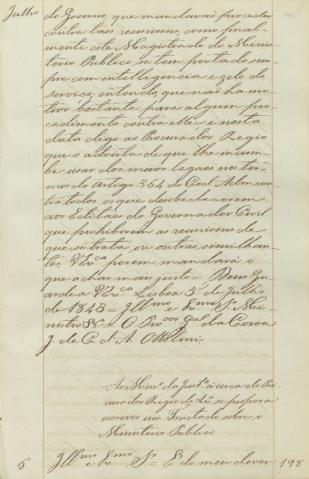 Julho do Governo, que mandavão proceder
contra taes reunioens, como final-
mente este Magistrado do Minis-
terio Publico se tem portado sem-
pre com intelligencia e zelo do
serviço; entendo que não ha mo-
tivo bastante para algum pro-
cedimento contra elle: e nesta
data digo ao Procurador Regio
que o advirta de que lhe incum-
be, usar dos meios legaes nos ter-
mos do Artigo 364 do Cod. Adm. con-
tra todos os que desobedecerem
aos Editaes do Governador Civil
que prohibirem as reunioens de
que se trata ou outras similhan-
tes. V. Exca. porem mandará o
que achar mais justo. Deus Gu-
arde a V. Exca. Lisboa 5 de Julho
de 1848 = Illmo. e Exmo. Sr. Mi-
nistro &a. = O Procor. Geral da Coroa
J. de C. d'A. Ottolini.
Ao Minº. da Justa. ácerca do Pro-
curador Regio de Lxa. se propor a
escrever um Tractado sobre o
Ministerio Publico
6 Illmo. e Exmo. Sr. É do meu dever 198